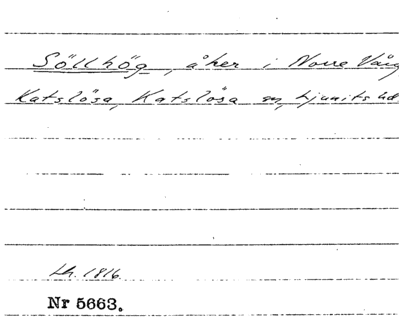 Söllhög, åker i Norre Vång
Katslösa, Katslösa sn, Ljunits hd
Lh. 1816.
Nr 5663.